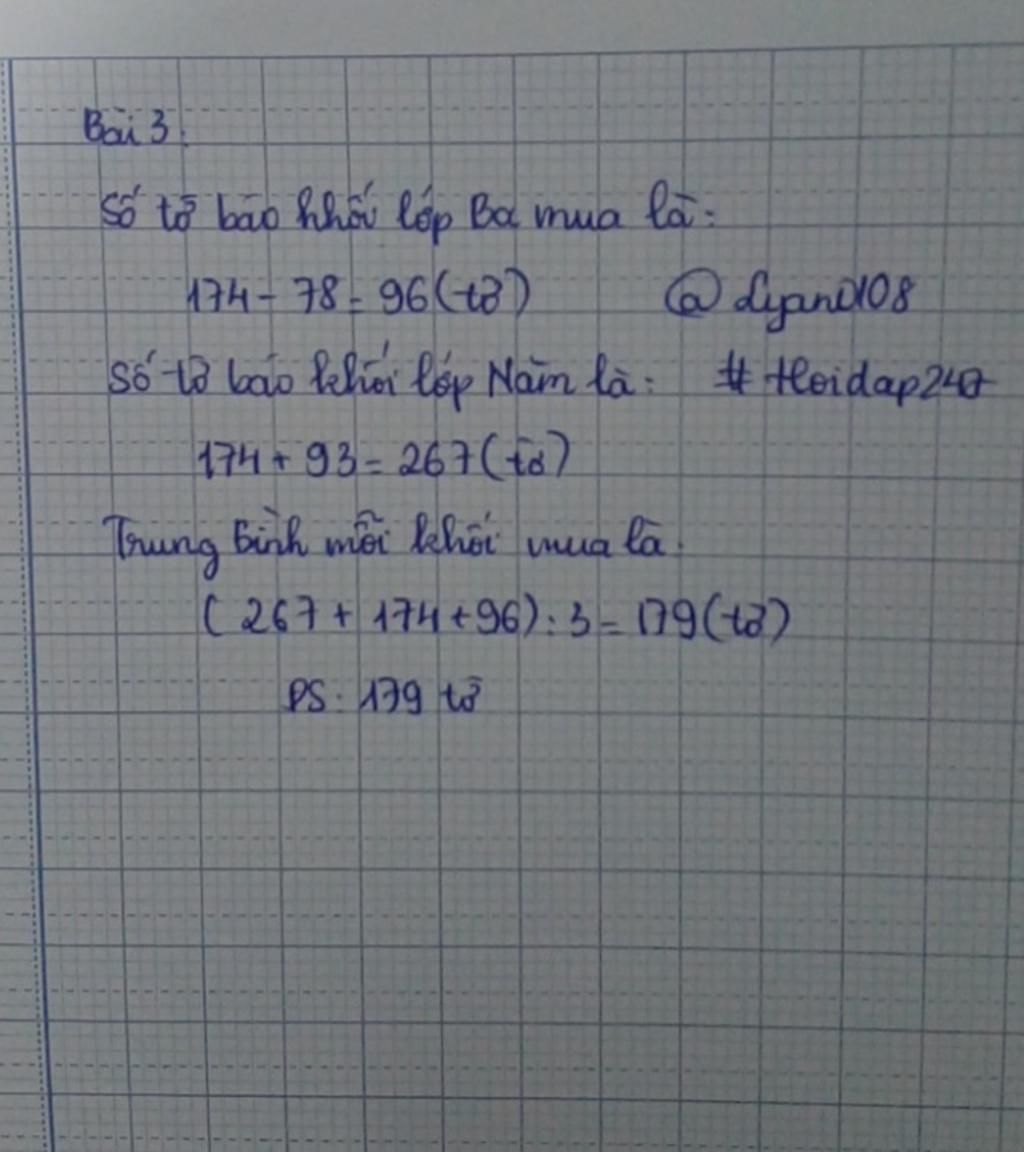 Bài 3:
Số tờ báo khối lớp Ba mua là:
174 - 78 = 96 (tờ) @ Lyand108
Số tờ báo khối lớp Năm là: # Hoidap247
174 + 93 = 267 (tờ)
Trung bình mỗi khối mua là:
(267 + 174 + 96) : 3 = 179 (tờ)
ĐS: 179 tờ